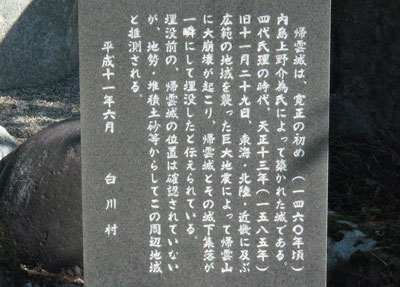 帰雲城は、寛正の初め（一四六〇年頃）
内島上野介為氏によって築かれた城である。
四代氏理の時代、天正十三年（一五八五年）
旧十一月二十九日、東海・北陸・近畿に及ぶ
広範の地域を襲った巨大地震によって帰雲山
に大崩壊が起こり、帰雲城とその城下集落が
一瞬にして埋没したと伝えられている。
埋没前の、帰雲城の位置は確認されていない
が、地勢・堆積土砂等からしてこの周辺地域
と推測される。
平成十一年六月　白川村